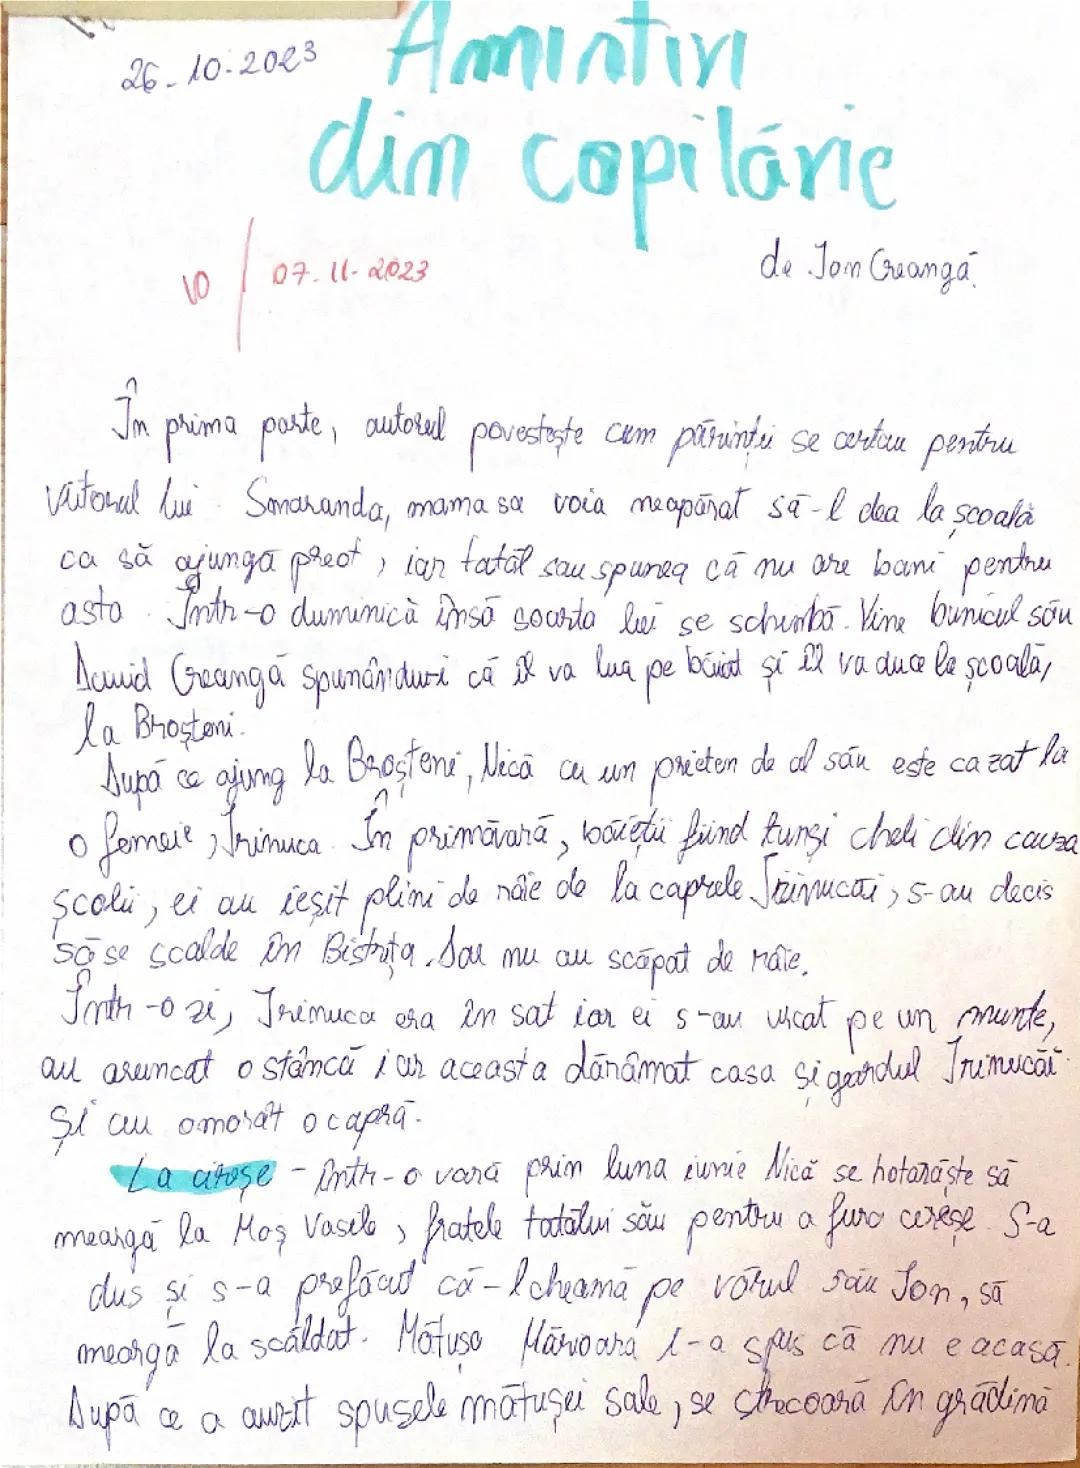 26-10-2023
Amintiri
din copilărie
10 / 07-11-2023
de Ion Creangă.
În prima parte, autorul povestește cum părinții se certau pentru
viitorul lui. Smaranda, mama sa voia neapărat să-l dea la școală
ca să ajungă preot, iar tatăl sau spunea că nu are bani pentru
asta. Într-o duminică însă soarta lui se schimbă. Vine bunicul său
David Creangă spunându-i că îl va lua pe băiat și îl va duce la școală,
la Broșteni.
După ce ajung la Broșteni, Nică cu un prieten de al său este cazat la
o femeie, Irinuca. În primăvară, băieții fiind tunși cheli din cauza
școlii, ei au ieșit plini de râie de la caprele Irinucăi, s-au decis
să se scalde în Bistrița. Dar nu au scăpat de râie.
Într-o zi, Irinuca era în sat iar ei s-au urcat pe un munte,
au aruncat o stâncă iar aceasta dărâmat casa și gardul Irinucăi
și au omorât o capră.
La cireșe - într-o vară prin luna iunie Nică se hotărăște să
meargă la Moș Vasile, fratele tatălui său pentru a fura cireșe. S-a
dus și s-a prefăcut că-l cheamă pe vărul său Ion, să
meargă la scăldat. Mătușa Mărioara i-a spus că nu e acasă.
După ce a auzit spusele mătușei sale, se strecoară în grădină